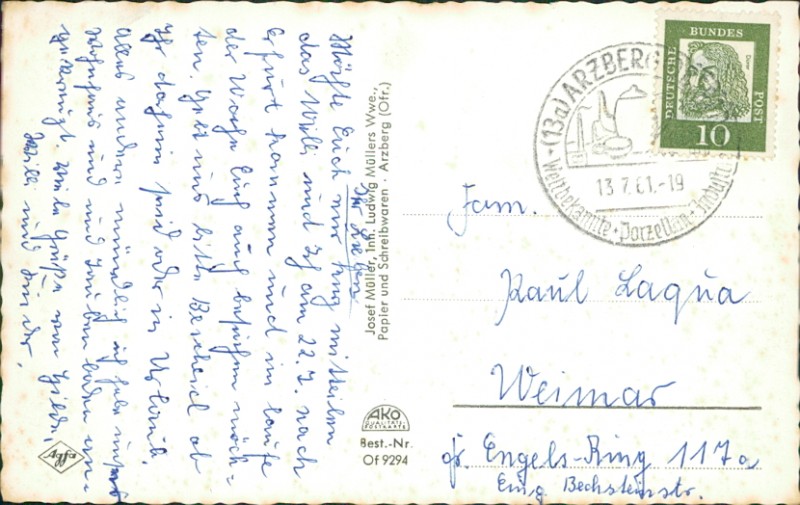 Ihr Lieben
Möchte Euch nur kurz mitteilen
das Willi und Ich am 22.7. nach
Erfurt kommen und im laufe
der Woche Euch auch besuchen möch-
ten. Gebt uns bitte Bescheid ob
Ihr daheim seid oder in Urlaub.
Alles andere mündlich ich habe
Wohnhaus und und
Viele Grüße von
Willi und
Josef Müller, Inh. Ludwig Müllers Wwe.,
Papier und Schreibwaren · Arzberg (Ofr.)
AKO
QUALITÄTS-
POSTKARTE
Best.-Nr.
Of 9294
Agfa
(13a) ARZBERG
13.7.61.-19
Weltbekannte · Porzellan · Industrie
DEUTSCHE
BUNDES
POST
Dürer
10
Fam.
Paul Laqua
Weimar
fr. Engels-Ring 117a
Eing Bechsteinstr.